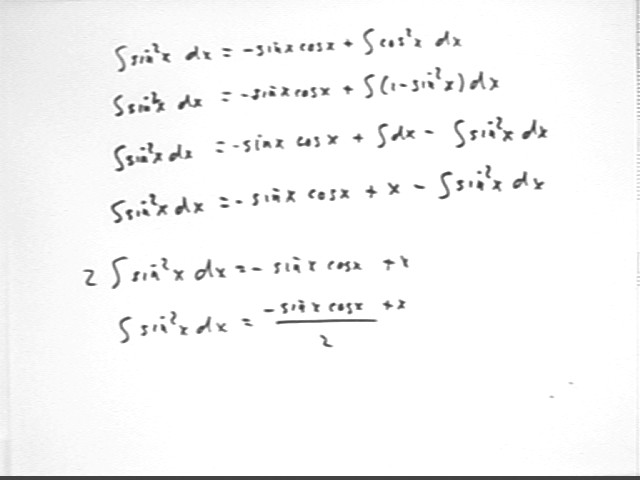 ∫sin²x dx = -sinx cosx + ∫cos²x dx
∫sin²x dx = -sinx cosx + ∫(1-sin²x)dx
∫sin²x dx = -sinx cosx + ∫dx - ∫sin²x dx
∫sin²x dx = -sinx cosx + x - ∫sin²x dx
2 ∫sin²x dx = - sinx cosx + x
∫sin²x dx = (-sinx cosx + x)/2